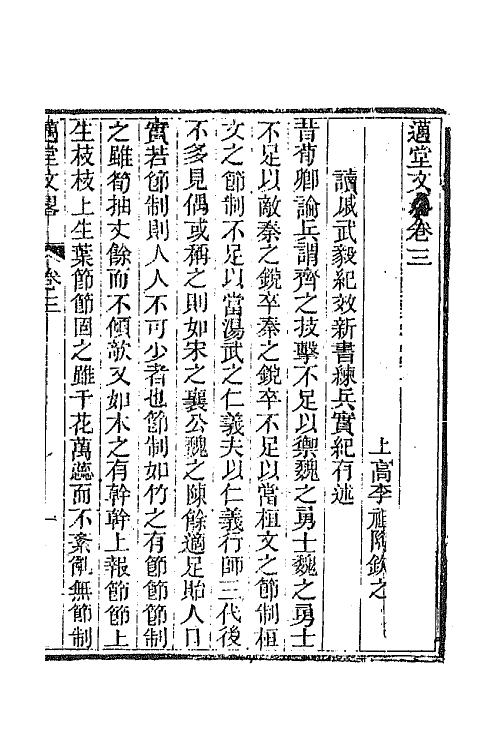 邁堂文略卷三
上高李祖陶欽之
讀戚武毅紀效新書練兵實紀有述
昔荀卿論兵謂齊之技擊不足以禦魏之勇士魏之勇士
不足以敵秦之銳卒秦之銳卒不足以當桓文之節制桓
文之節制不足以當湯武之仁義夫以仁義行師三代後
不多見偶或稱之則如宋之襄公魏之陳餘適足貽人口
實若節制則人人不可少者也節制如竹之有節節節制
之雖筍抽丈餘而不傾欹又如木之有幹幹上報節節上
生枝枝上生葉節節固之雖千花萬蕊而不紊亂無節制
邁堂文畧
卷三
一